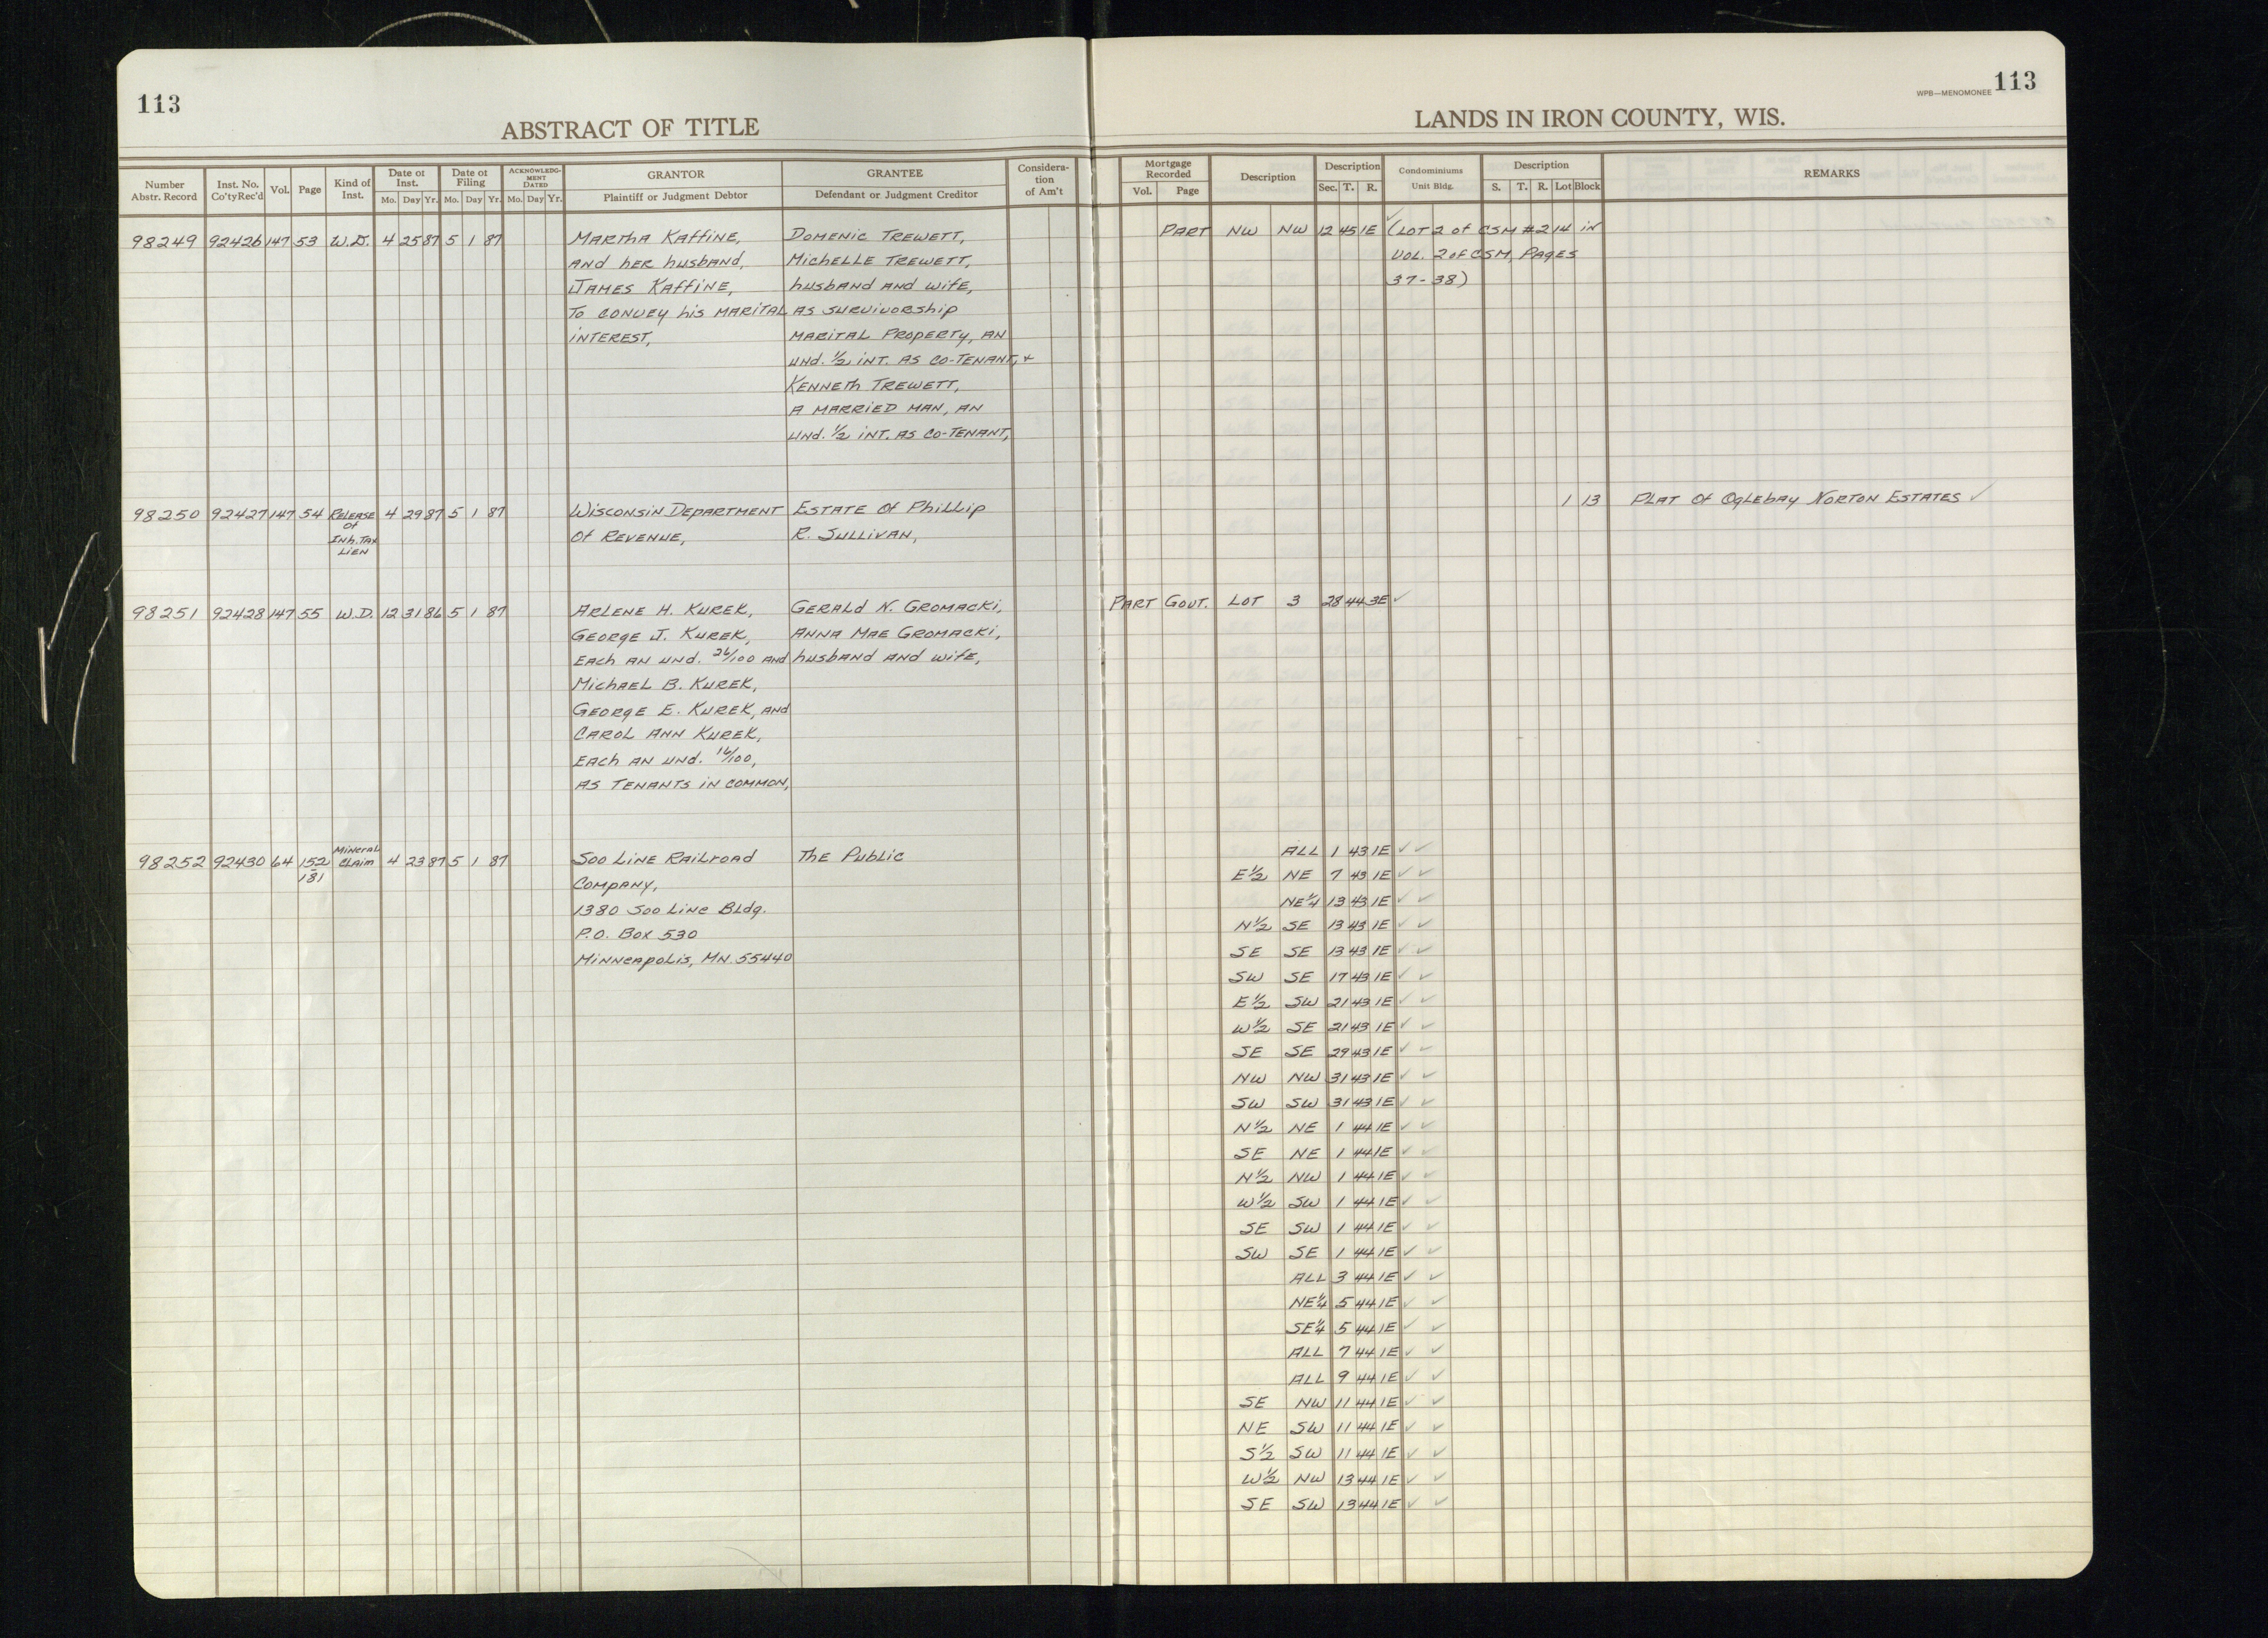 113
ABSTRACT OF TITLE
Number Abstr. Record
Inst. No. Co'ty Rec'd
Vol.
Page
Kind of Inst.
Date of Inst.
Mo. Day Yr.
Date of Filing
Mo. Day Yr.
ACKNOWLEDGMENT DATED
Mo. Day Yr.
GRANTOR
Plaintiff or Judgment Debtor
GRANTEE
Defendant or Judgment Creditor
Considera-
tion
of Am't
98249 92426 147 53 W.D. 4 25 87 5 1 87 Martha Kaffine, Domenic Trewett,
and her husband, Michelle Trewett,
James Kaffine, husband and wife,
To convey his marital as survivorship
interest, marital property, an
und. ½ int. as co-tenant, +
Kenneth Trewett,
a married man, an
und. ½ int. as co-tenant,
98250 92427 147 54 Release of Inh. Tax Lien 4 29 87 5 1 87 Wisconsin Department Estate of Phillip
of Revenue, R. Sullivan,
98251 92428 147 55 W.D. 12 31 86 5 1 87 Arlene H. Kurek, Gerald N. Gromacki,
George J. Kurek, Anna Mae Gromacki,
each an und. 26/100 and husband and wife,
Michael B. Kurek,
George E. Kurek, and
Carol Ann Kurek,
each an und. 16/100,
as tenants in common,
98252 92430 64 152-181 Mineral Claim 4 23 87 5 1 87 Soo Line Railroad The Public
Company,
1380 Soo Line Bldg.
P.O. Box 530
Minneapolis, MN 55440
WPB—MENOMONEE 113
LANDS IN IRON COUNTY, WIS.
Mortgage Recorded
Vol. Page
Description
Description
Sec. T. R.
Condominiums
Unit Bldg.
Description
S. T. R. Lot Block
REMARKS
Part NW NW 12 45 1E ✓ (Lot 2 of CSM #214 in
Vol. 2 of CSM, Pages
37-38)
1 13 Plat of Oglebay Norton Estates ✓
Part Govt. Lot 3 28 44 3E ✓
ALL 1 43 1E ✓ ✓
E½ NE 7 43 1E ✓ ✓
NE¼ 13 43 1E ✓ ✓
N½ SE 13 43 1E ✓ ✓
SE SE 13 43 1E ✓ ✓
SW SE 17 43 1E ✓ ✓
E½ SW 21 43 1E ✓ ✓
W½ SE 21 43 1E ✓ ✓
SE SE 29 43 1E ✓ ✓
NW NW 31 43 1E ✓ ✓
SW SW 31 43 1E ✓ ✓
N½ NE 1 44 1E ✓ ✓
SE NE 1 44 1E ✓ ✓
N½ NW 1 44 1E ✓ ✓
W½ SW 1 44 1E ✓ ✓
SE SW 1 44 1E ✓ ✓
SW SE 1 44 1E ✓ ✓
ALL 3 44 1E ✓ ✓
NE¼ 5 44 1E ✓ ✓
SE¼ 5 44 1E ✓ ✓
ALL 7 44 1E ✓ ✓
ALL 9 44 1E ✓ ✓
SE NW 11 44 1E ✓ ✓
NE SW 11 44 1E ✓ ✓
S½ SW 11 44 1E ✓ ✓
W½ NW 13 44 1E ✓ ✓
SE SW 13 44 1E ✓ ✓